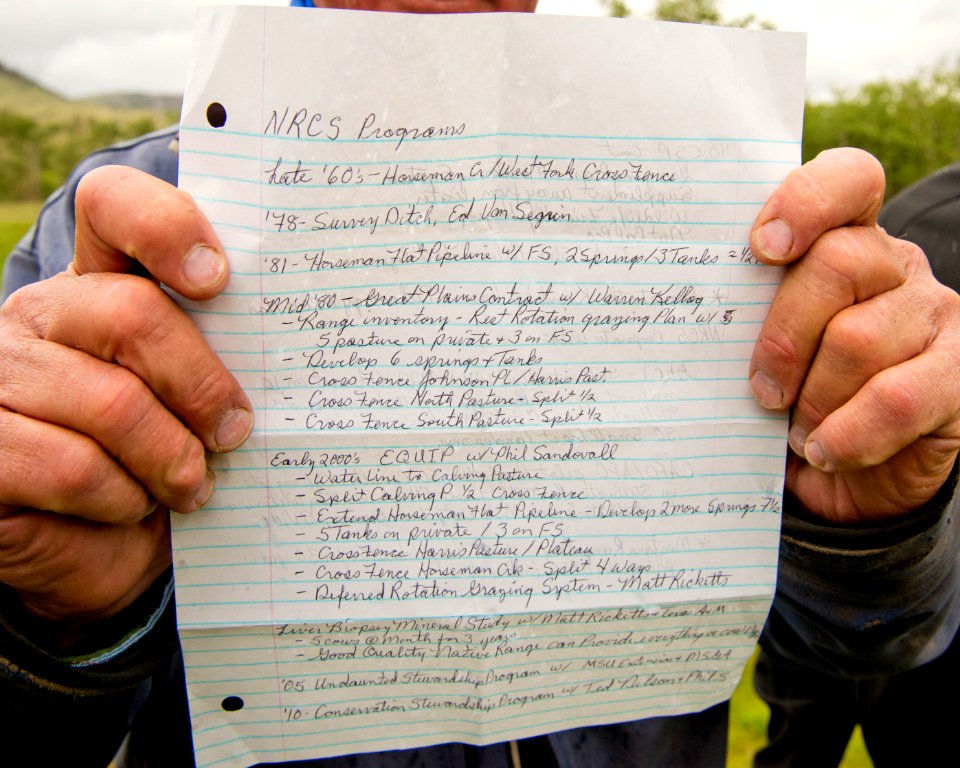 NRCS Programs
Late '60's - Horseman Cr/West Fork Cross Fence
'78 - Survey Ditch, Ed Van Seguin
'81 - Horseman Flat Pipeline w/ FS, 2 Springs/3 Tanks
Mid '80 - Great Plains Contract w/ Warren Kellog *
- Range inventory - Rest Rotation grazing Plan w/
5 pasture on private + 3 on FS
- Develop 6 springs + Tanks
- Cross Fence Johnson Pl/Harris Past.
- Cross Fence North Pasture - Split 1/2
- Cross Fence South Pasture - Split 1/2
Early 2000's EQUIP w/ Phil Sandovall
- Water Line to Calving Pasture
- Split Calving P 1/2 Cross Fence
- Extend Horseman Flat Pipeline - Develop 2 more Springs
- 5 Tanks on private / 3 on FS
- Cross Fence Harris Pasture / Plateau
- Cross Fence Horseman Crk - Split 4 Ways
- Deferred Rotation Grazing System - Matt Ricketts
Liver Biopsey Mineral Study w/ Matt Ricketts
5 cows @ month for 3 years
- Good Quality Native Range can Provide everything a cow
'05 Undaunted Stewardship Program w/ MSU Extension +
'10 - Conservation Stewardship Program w/ Ted Nelson + Phil S